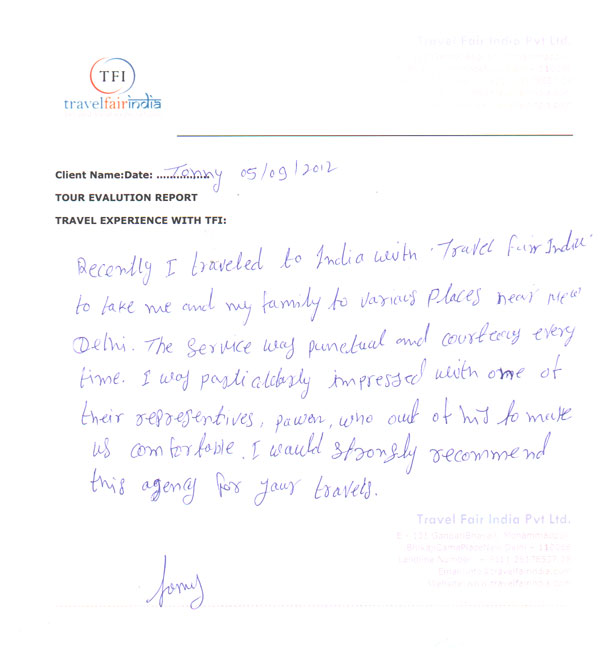 Travel Fair India Pvt Ltd.
TFI
travelfairindia
Client Name:Date: ............... Jonny 05/09/2012
TOUR EVALUTION REPORT
TRAVEL EXPERIENCE WITH TFI:
Recently I traveled to India with "Travel Fair India"
to take me and my family to various places near New
Delhi. The Service was punctual and courteous every
time. I was particularly impressed with one of
their representives, pawan, who out of his to make
us comfortable. I would strongly recommend
this agency for your travels.
Travel Fair India Pvt Ltd.